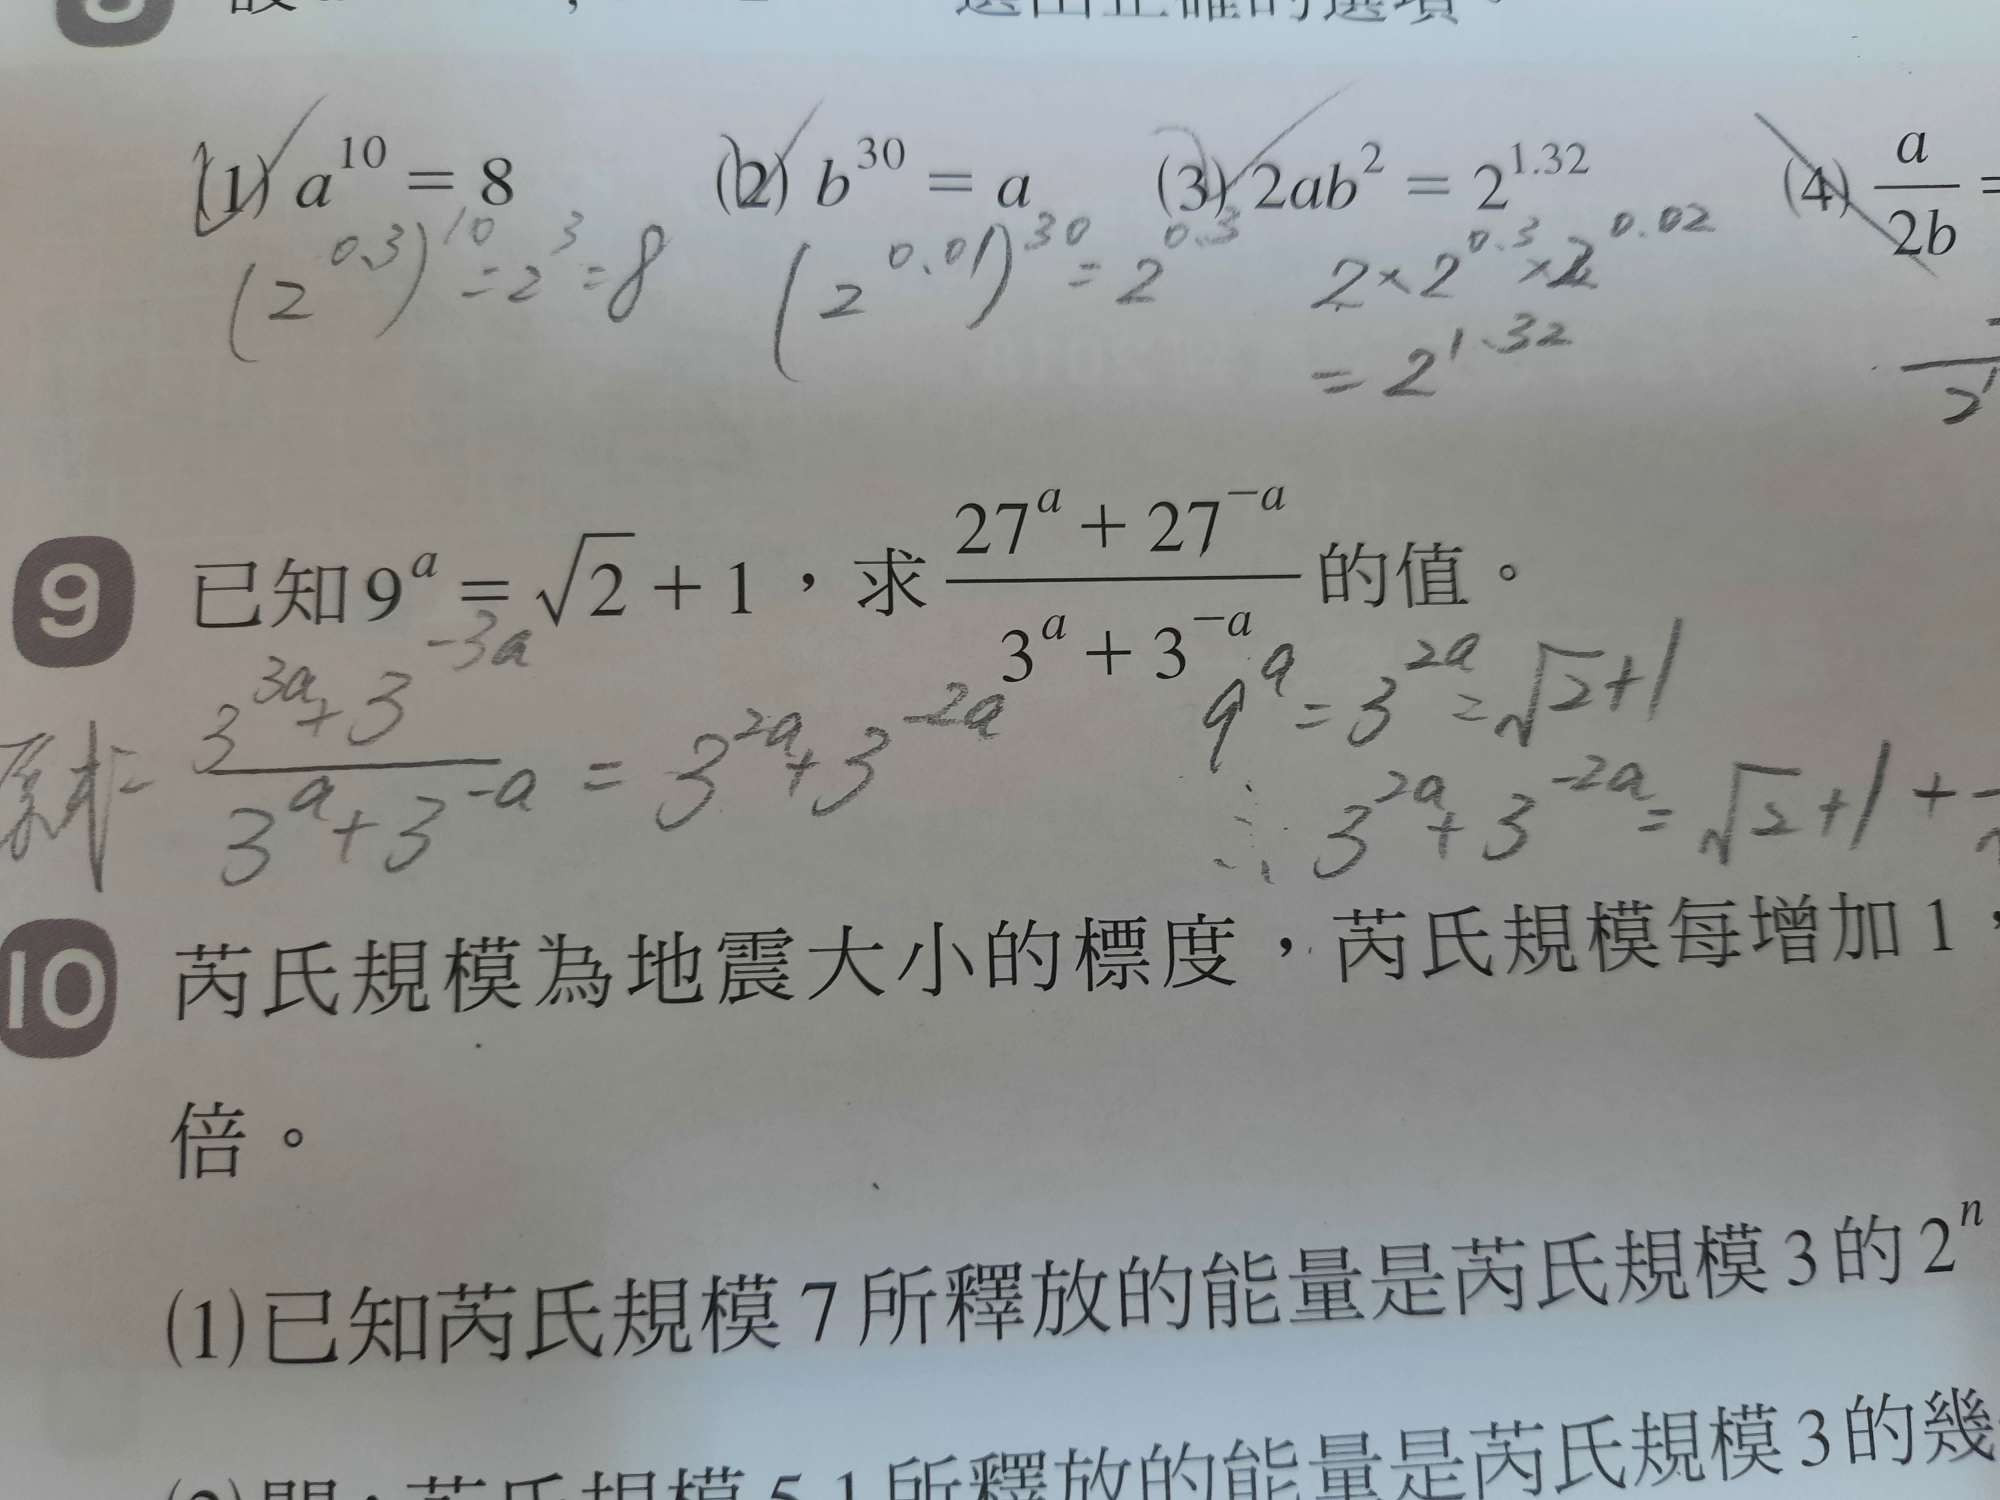 選出正確的選項。
(1) a^10 = 8 (2) b^30 = a (3) 2ab^2 = 2^1.32 (4) a/2b =
(2^0.3)^10 = 2^3 = 8 (2^0.01)^30 = 2^0.3 2×2^0.3×2^0.02
= 2^1.32
9 已知9^a = √2 + 1，求 (27^a + 27^-a)/(3^a + 3^-a) 的值。
原式= (3^3a + 3^-3a)/(3^a + 3^-a) = 3^2a + 3^-2a 9^a = 3^2a = √2+1
∴ 3^2a + 3^-2a = √2+1 +
10 芮氏規模為地震大小的標度，芮氏規模每增加1，
倍。
(1)已知芮氏規模7所釋放的能量是芮氏規模3的2^n
(2)問：芮氏規模5.1所釋放的能量是芮氏規模3的幾